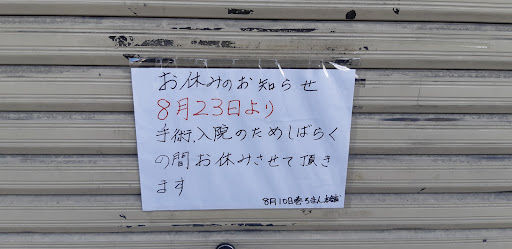 お休みのお知らせ
8月23日より
手術、入院のためしばらく
の間お休みさせて頂き
ます
8月10日